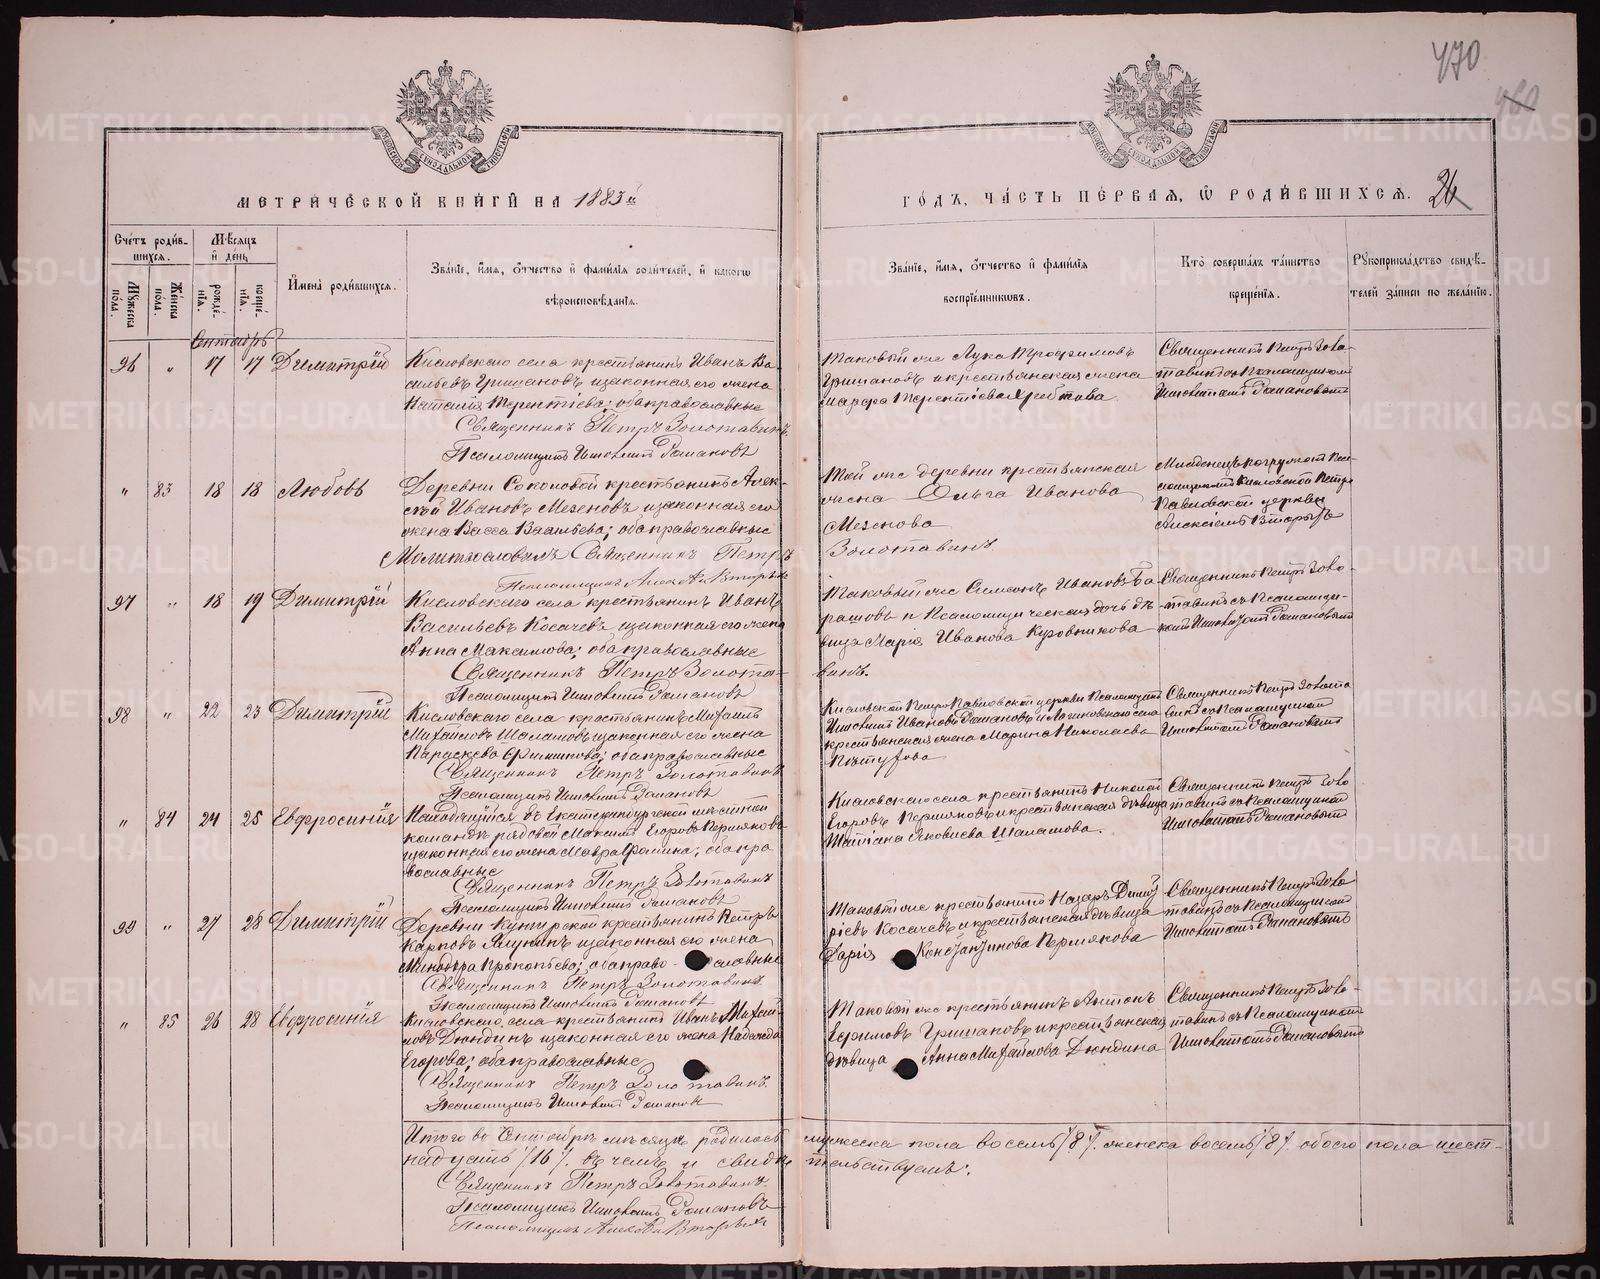 470
460
МЕТРИ́ЧЕСКОЙ КНИ́ГИ НА 1883й
ГО́ДЪ, ЧА́СТЬ ПЕ́РВАЯ, Ѽ РОДИ́ВШИХСЯ. 26
Сче́тъ роди́в-
шихся.
Му́жеска по́ла.
Же́нска по́ла.
Мѣ́сяцъ и҆ де́нь
рожде́нїя.
креще́нїя.
И҆мена̀ роди́вшихся.
Зва́нїе, и҆́мя, ѻ҆́тчество и҆ фами́лїя роди́телей, и҆ како́гѡ
вѣроисповѣ́данїя.
Зва́нїе, и҆́мя, ѻ҆́тчество и҆ фами́лїя
воспрїе́мниковъ.
Кто̀ соверша́лъ та́инство
креще́нїя.
Рукоприкла́дство свидѣ́-
телей за́писи по жела́нїю.
Сентябрь
96 " 17 17 Димитрій
Кисловскаго села крестьянинъ Иванъ Ва-
сильевъ Гришановъ изаконная его жена
Наталія Терентіева; оба православные
Священникъ Петръ Золотавинъ.
Псаломщикъ Ипполитъ Романовъ
Таковый же Лука Трофимовъ
Гришановъ и крестьянская жена
Марфа Терентіева
Священникъ Петръ Золо-
тавинъ съ Псаломщикомъ
Ипполитомъ Романовымъ
" 83 18 18 Любовь
Деревни Соколовой крестьянинъ Алек-
сѣй Ивановъ Мезеновъ изаконная его
жена Васса Васильева; оба православные
Молитвословилъ Священникъ Петръ
Псаломщикъ Алексѣй Вторыхъ
Той же деревни крестьянская
жена Ольга Иванова
Мезенова
Золотавинъ.
Младенецъ погруженъ Пса-
ломщикомъ Кисловской Петро
Павловской церкви
Алексіемъ Вторыхъ
97 " 18 19 Димитрій
Кисловскаго села крестьянинъ Иванъ
Васильевъ Косачевъ изаконная его жена
Анна Максимова; оба православные
Священникъ Петръ Золота-
Псаломщикъ Ипполитъ Романовъ
Таковый же Симеонъ Ивановъ Ба-
рашовъ и Псаломщическая дочь дѣ-
вица Марія Иванова Куровникова
винъ.
Священникъ Петръ Золо-
тавинъ съ Псаломщи-
комъ Ипполитомъ Романовымъ
98 " 22 23 Димитрій
Кисловскаго села крестьянинъ Михаилъ
Михайловъ Шаламовъ изаконная его жена
Параскева Филиппова; оба православные
Священникъ Петръ Золотавинъ
Псаломщикъ Ипполитъ Романовъ
Кисловской Петро Павловской церкви Псаломщикъ
Ипполитъ Ивановъ Романовъ и Логиновскаго села
крестьянская жена Марина Николаева
Священникъ Петръ Золота
винъ съ Псаломщикомъ
Ипполитомъ Романовымъ
" 84 24 25 Евфросинія
Находящійся въ Екатеринбургской мѣстной
командѣ рядовой Максимъ Егоровъ Пермяковъ
изаконная его жена Мавра Фомина; оба пра
вославные
Священникъ Петръ Золотавинъ
Псаломщикъ Ипполитъ Романовъ
Кисловскаго села крестьянинъ Николай
Егоровъ Пермяковъ и крестьянская дѣвица
Татіана Яковлева Шаламова.
Священникъ Петръ Золо
тавинъ съ Псаломщикомъ
Ипполитомъ Романовымъ
99 " 27 28 Димитрій
Деревни крестьянинъ Петръ
Карповъ Ялунинъ изаконная его жена
Минодора Прокопьева; оба право - славные
Священникъ Петръ Золотавинъ.
Псаломщикъ Ипполитъ Романовъ
Таковый же крестьянинъ Назаръ Димит
ріевъ Косачевъ и крестьянская дѣвица
Дарія Константинова Пермякова
Священникъ Петръ Золо
тавинъ съ Псаломщикомъ
Ипполитомъ Романовымъ
" 85 26 28 Евфросинія
Кисловскаго села крестьянинъ Иванъ Михай-
ловъ Дюндинъ изаконная его жена Надежда
Егорова; оба православные
Священникъ Петръ Золотавинъ.
Псаломщикъ Ипполитъ Романовъ
Таковый же крестьянинъ Антонъ
Гришановъ и крестьянская
дѣвица Анна Михайлова Дюндина
Священникъ Петръ Золо-
тавинъ съ Псаломщикомъ
Ипполитомъ Романовымъ
Итого въ Сентябрѣ мѣсяцѣ родилось мужеска пола восемь /8/. женска восемь /8/. обоего пола шест-
надцать /16/. въ чемъ и свидѣ тельствуемъ:
Священникъ Петръ Золотавинъ.
Псаломщикъ Ипполитъ Романовъ
Псаломщикъ Алексѣй Вторыхъ